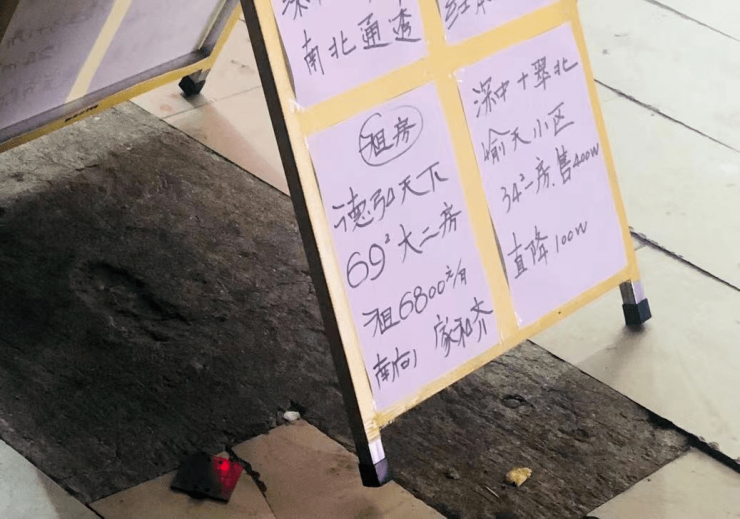 南北通透
租房
德弘天下
69² 大二房
租6800元/月
南向 家和齐
深中+翠北
愉天小区
34²一房.售400W
直降100W